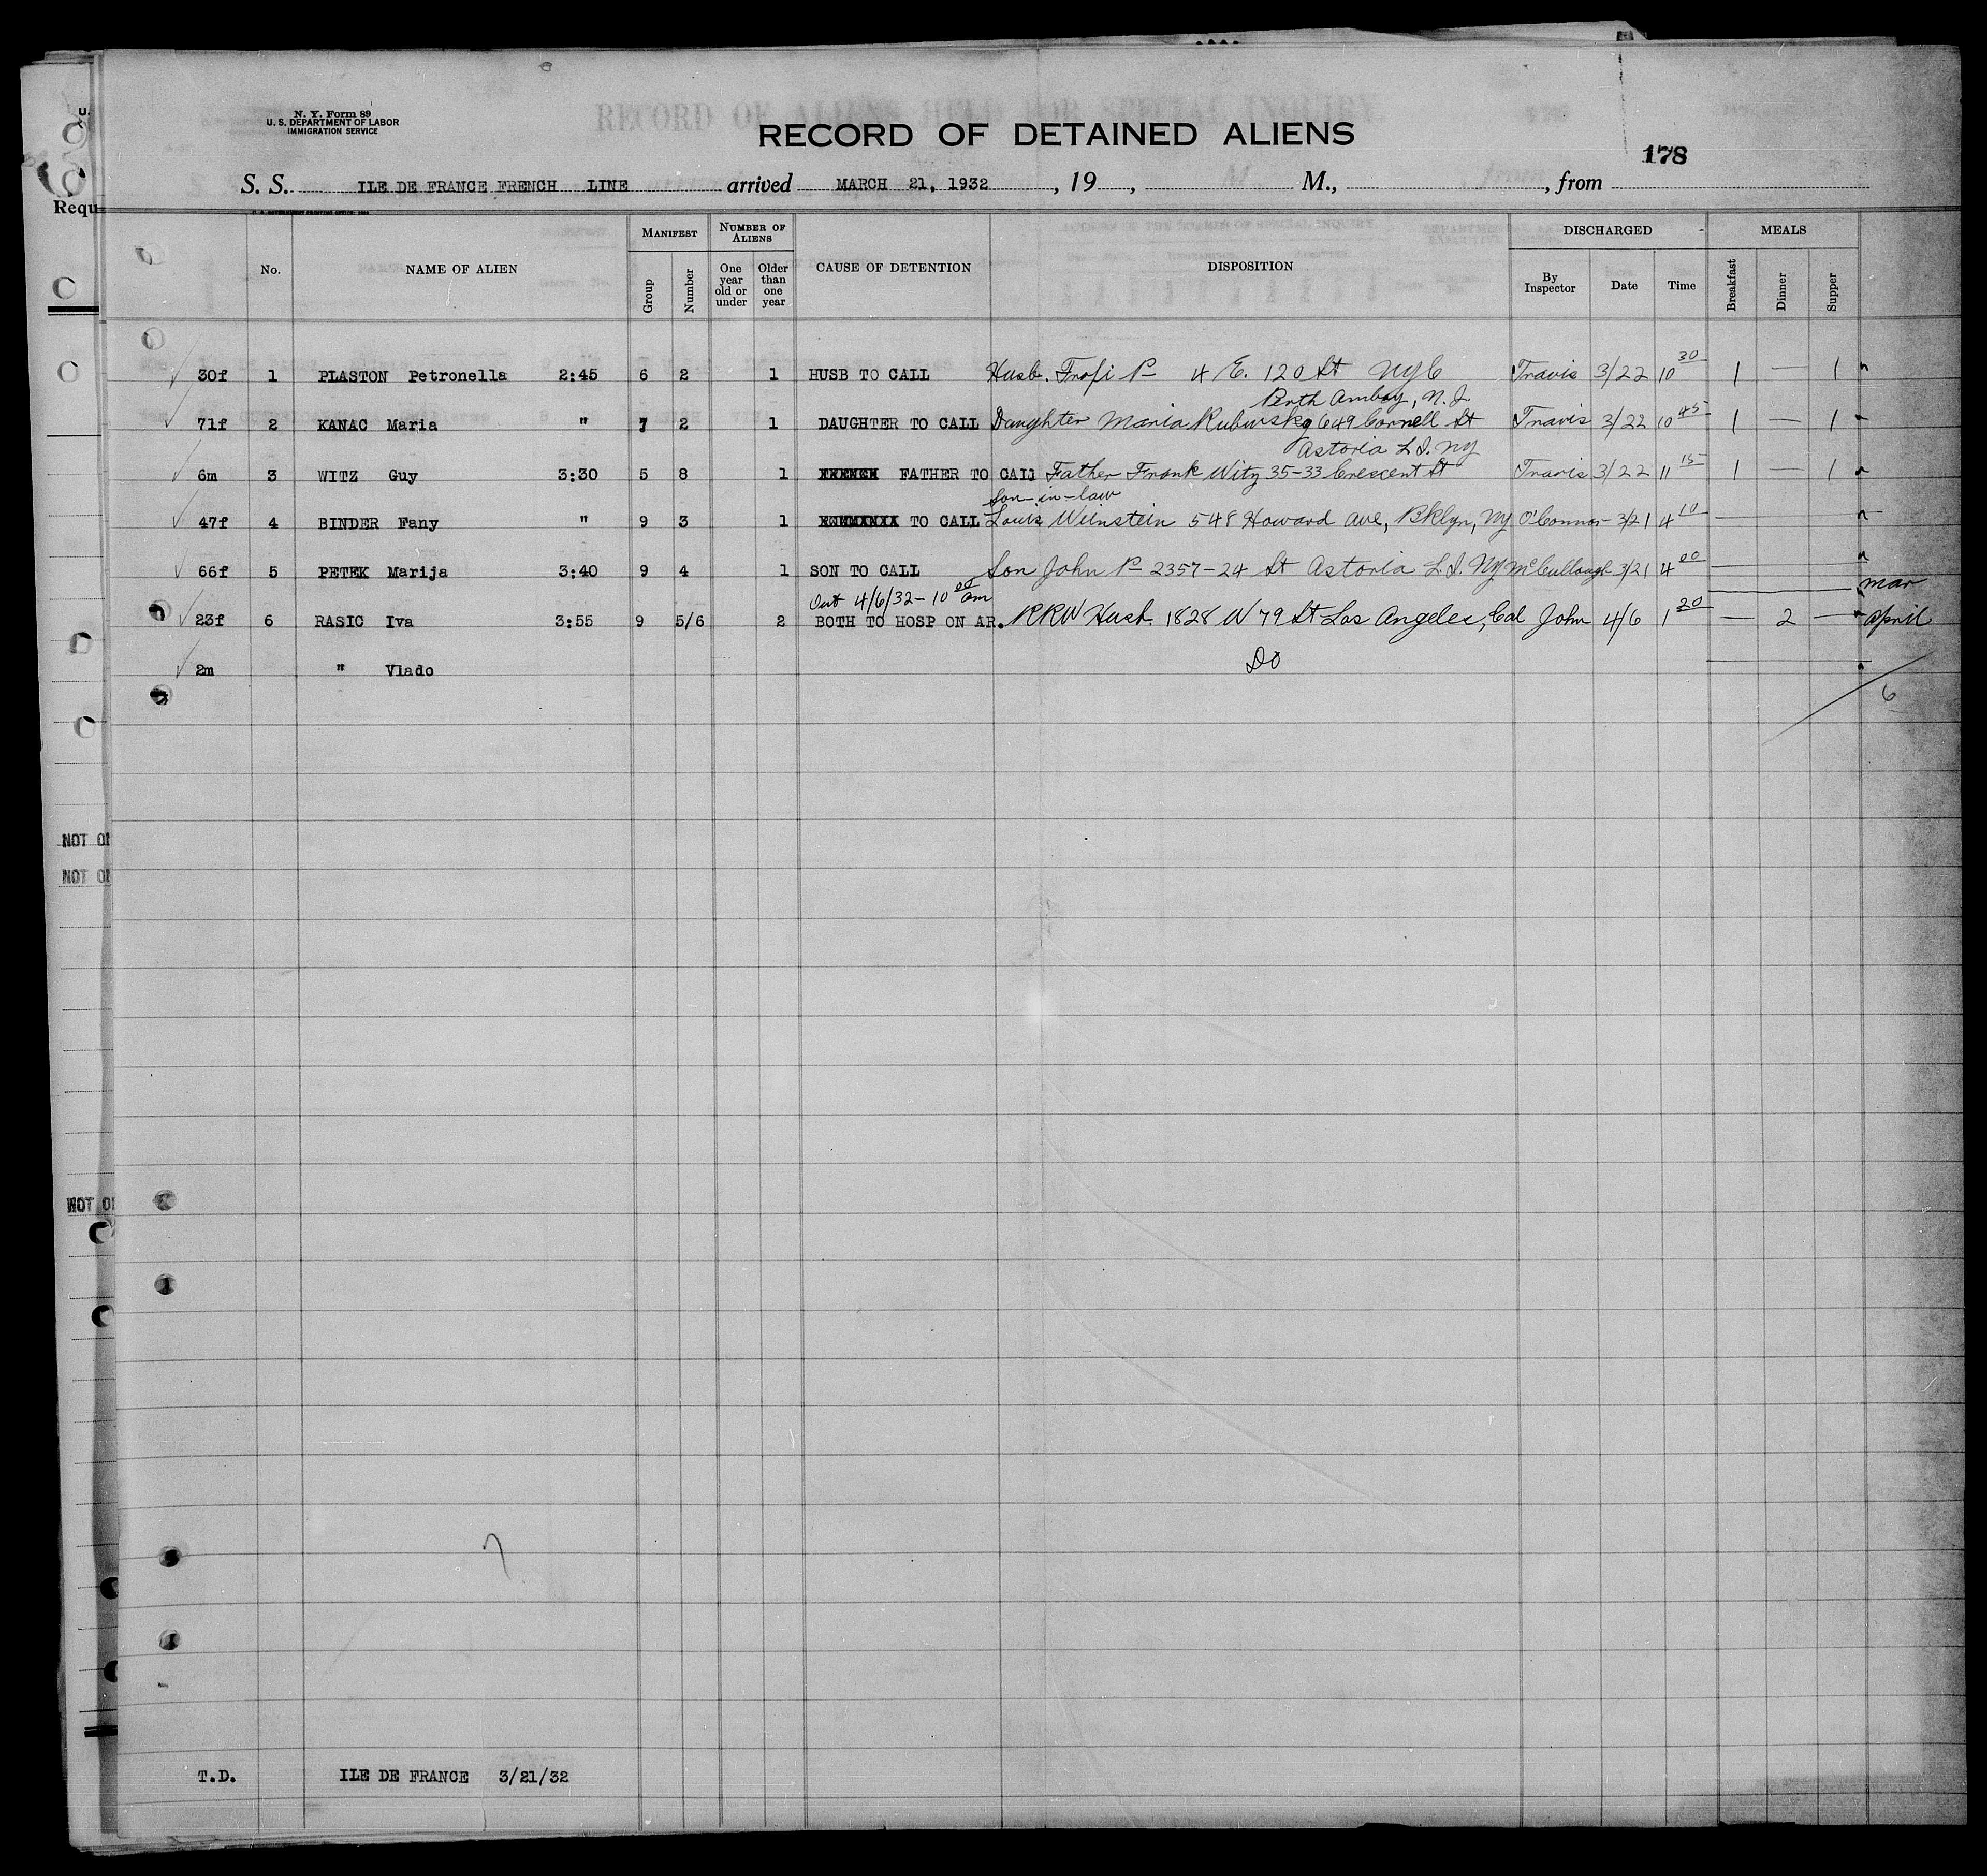 N. Y. Form 89
U. S. DEPARTMENT OF LABOR
IMMIGRATION SERVICE
RECORD OF DETAINED ALIENS
178
S. S. ILE DE FRANCE FRENCH LINE arrived MARCH 21, 1932, 19 , M., , from
Requ
No. NAME OF ALIEN MANIFEST Group Number NUMBER OF ALIENS One year old or under Older than one year CAUSE OF DETENTION DISPOSITION DISCHARGED By Inspector Date Time MEALS Breakfast Dinner Supper
30f 1 PLASTON Petronella 2:45 6 2 1 HUSB TO CALL Husb. Trofi P— 4 E. 120 St NYC Travis 3/22 10 30 1 — 1
Perth Amboy, N.J.
71f 2 KANAC Maria " 7 2 1 DAUGHTER TO CALL Daughter Maria 649 Cornell St Travis 3/22 10 45 1 — 1
Astoria L.I. NY
6m 3 WITZ Guy 3:30 5 8 1 FATHER TO CALL Father Frank Witz 35-33 Crescent St Travis 3/22 11 15 1 — 1
Son-in-law
47f 4 BINDER Fany " 9 3 1 TO CALL Louis Weinstein 548 Howard Ave, Bklyn, NY O'Connor 3/21 4 10
66f 5 PETEK Marija 3:40 9 4 1 SON TO CALL Son John P— 2357-24 St Astoria L.I. NY McCullough 3/21 4 00
Out 4/6/32 - 10 00 am mar
23f 6 RASIC Iva 3:55 9 5/6 2 BOTH TO HOSP ON AR. RRW Husb. 1828 W 79 St Los Angeles, Cal John 4/6 1 20 — 2 — April
2m " Vlado DO
6
NOT
NOT
NOT
T.D. ILE DE FRANCE 3/21/32